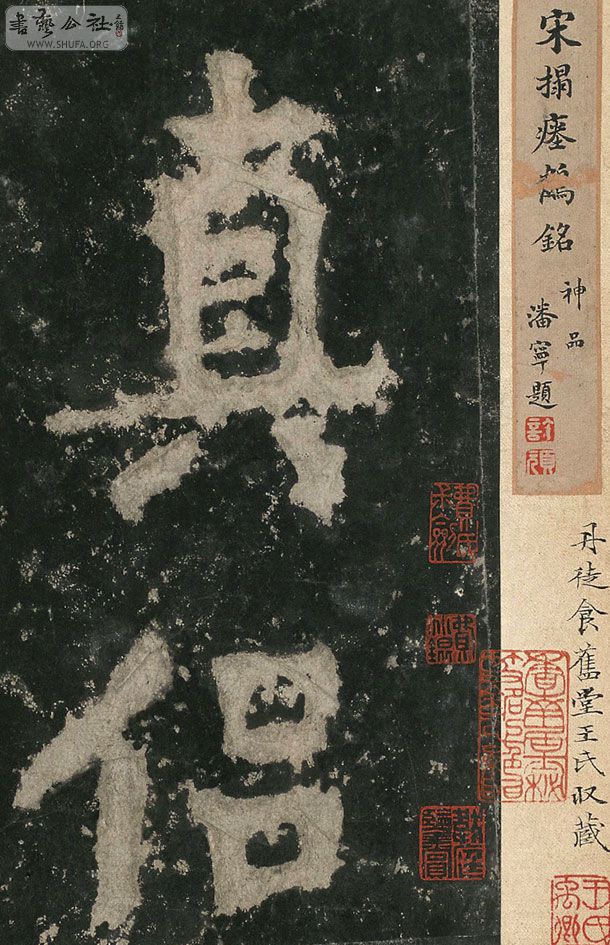 書藝公社
WWW.SHUFA.ORG
宋搨瘞鶴銘
神品
潘寧題
丹徒食舊堂王氏収藏
王氏禹卿
真侣